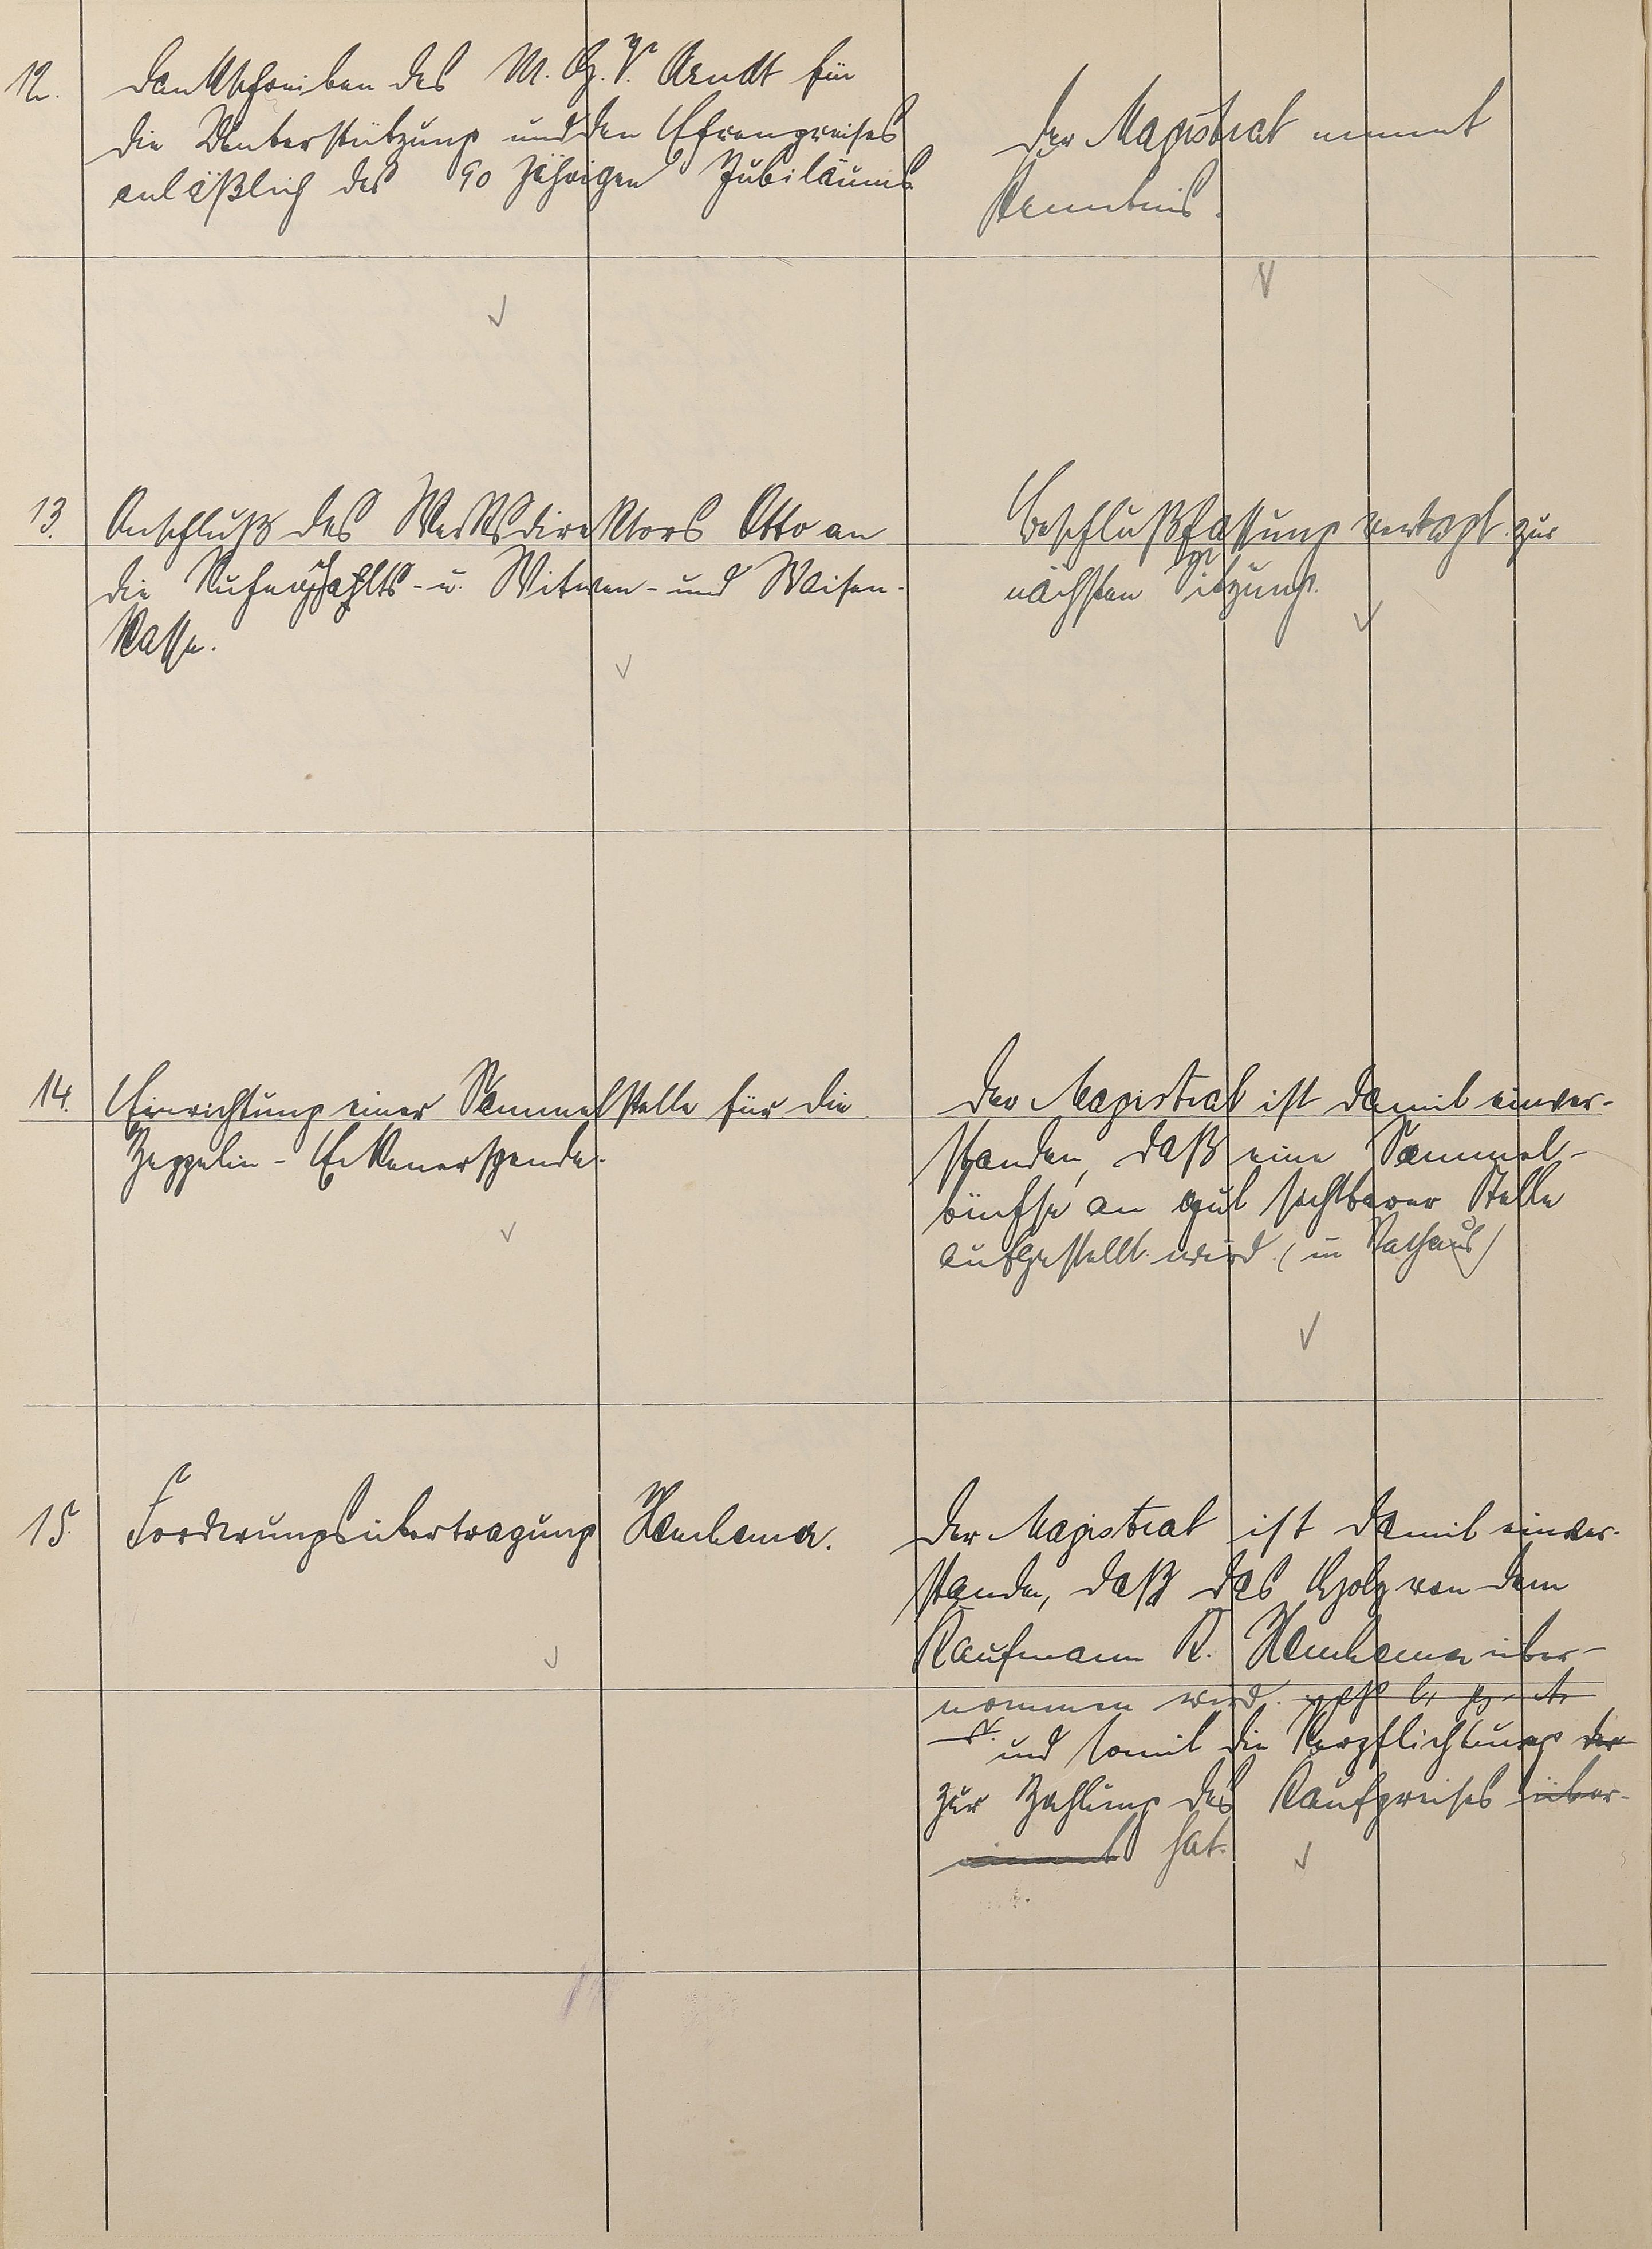 12.
Dankschreiben des M. G. V. Arndt für
die Unterstützung und den Ehrenpreises
anläßlich des 90 jährigen Jubiläums
Der Magistrat nimmt
Kenntnis.
13.
Anschluß des Werksdirektors Otto an
die Ruhegehalts- u. Witwen- und Waisen-
kasse.
Beschlußfassung vertagt zur
nächsten Sitzung.
14.
Einrichtung einer Sammelstelle für die
Zeppelin-Eckenerspende.
Der Magistrat ist damit einver-
standen, daß eine Sammel-
büchse an gut sichtbarer Stelle
aufgestellt wird. (im Rathaus)
15.
Forderungsübertragung
Der Magistrat ist damit einver-
standen, daß das Holz von dem
Kaufmann R. über-
nommen wird.
und somit die Verpflichtung der
zur Zahlung des Kaufpreises über-
nimmt hat.